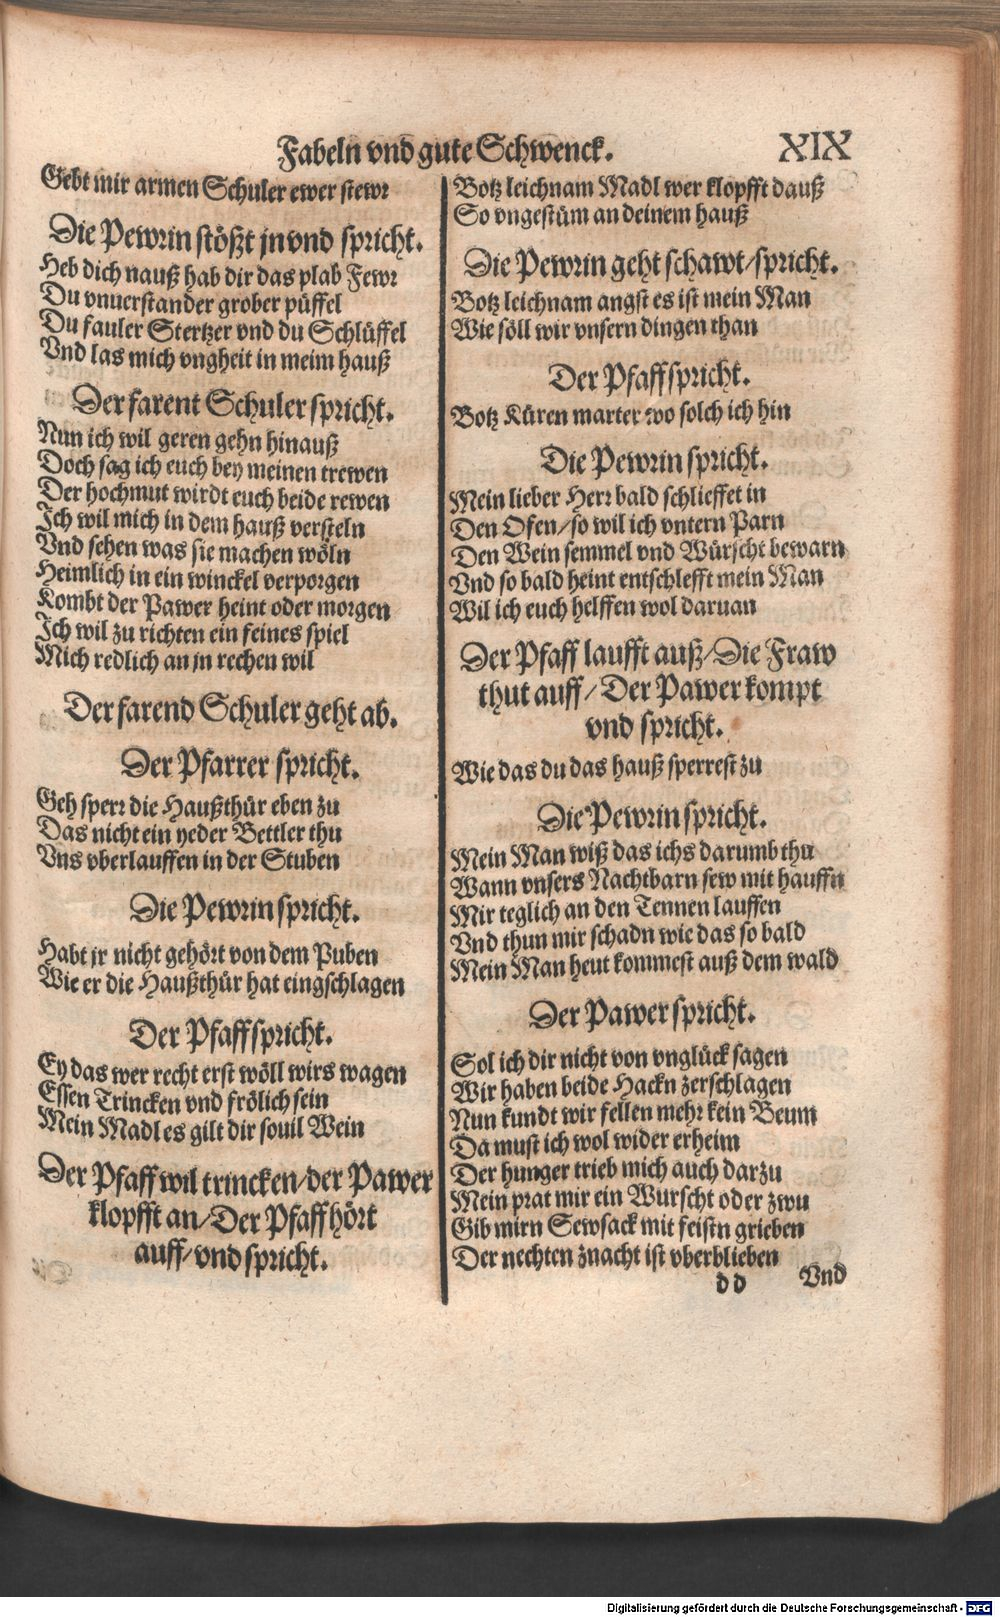 Fabeln vnd gute Schwenck. XIX
Gebt mir armen Schuler ewer stewr
Die Pewrin stößt jn vnd spricht.
Heb dich nauß hab dir das plab Fewr
Du vnuerstander grober püffel
Du fauler Stertzer vnd du Schlüffel
Vnd las mich vngheit in meim hauß
Der farent Schuler spricht.
Nun ich wil geren gehn hinauß
Doch sag ich euch bey meinen trewen
Der hochmut wirdt euch beide rewen
Ich wil mich in dem hauß versteln
Vnd sehen was sie machen wöln
Heimlich in ein winckel verporgen
Kombt der Pawer heint oder morgen
Ich wil zu richten ein feines spiel
Mich redlich an jn rechen wil
Der farend Schuler geht ab.
Der Pfarrer spricht.
Geh sperr die Haußthür eben zu
Das nicht ein yeder Bettler thu
Vns vberlauffen in der Stuben
Die Pewrin spricht.
Habt jr nicht gehört von dem Puben
Wie er die Haußthür hat eingschlagen
Der Pfaff spricht.
Ey das wer recht erst wöll wirs wagen
Essen Trincken vnd frölich sein
Mein Madl es gilt dir souil Wein
Der Pfaff wil trincken/der Pawer
klopfft an/Der Pfaff hört
auff/vnd spricht.
Botz leichnam Madl wer klopfft dauß
So vngestüm an deinem hauß
Die Pewrin geht schawt/spricht.
Botz leichnam angst es ist mein Man
Wie söll wir vnsern dingen than
Der Pfaff spricht.
Botz Küren marter wo solch ich hin
Die Pewrin spricht.
Mein lieber Herr bald schlieffet in
Den Ofen/so wil ich vntern Parn
Den Wein semmel vnd Würscht bewarn
Vnd so bald heint entschlefft mein Man
Wil ich euch helffen wol daruan
Der Pfaff laufft auß/Die Fraw
thut auff/Der Pawer kompt
vnd spricht.
Wie das du das hauß sperrest zu
Die Pewrin spricht.
Mein Man wiß das ichs darumb thu
Wann vnsers Nachtbarn sew mit hauffn
Mir teglich an den Tennen lauffen
Vnd thun mir schadn wie das so bald
Mein Man heut kommest auß dem wald
Der Pawer spricht.
Sol ich dir nicht von vnglück sagen
Wir haben beide Hackn zerschlagen
Nun kundt wir fellen mehr kein Beum
Da must ich wol wider erheim
Der hunger trieb mich auch darzu
Mein prat mir ein Wurscht oder zwu
Gib mirn Sewsack mit feistn grieben
Der nechten znacht ist vberblieben
dd Vnd
Digitalisierung gefördert durch die Deutsche Forschungsgemeinschaft - DFG